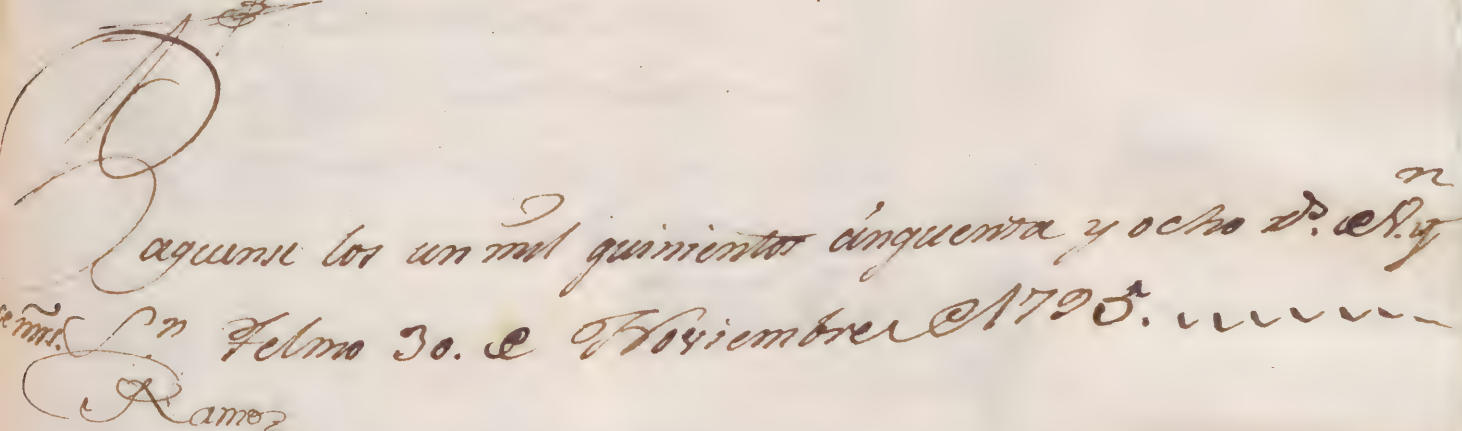 Paguense los un mil quinientos cinquenta y ocho rs. de Vn. y
Sn. Telmo 30. de Noviembre de 1795.
Ramos